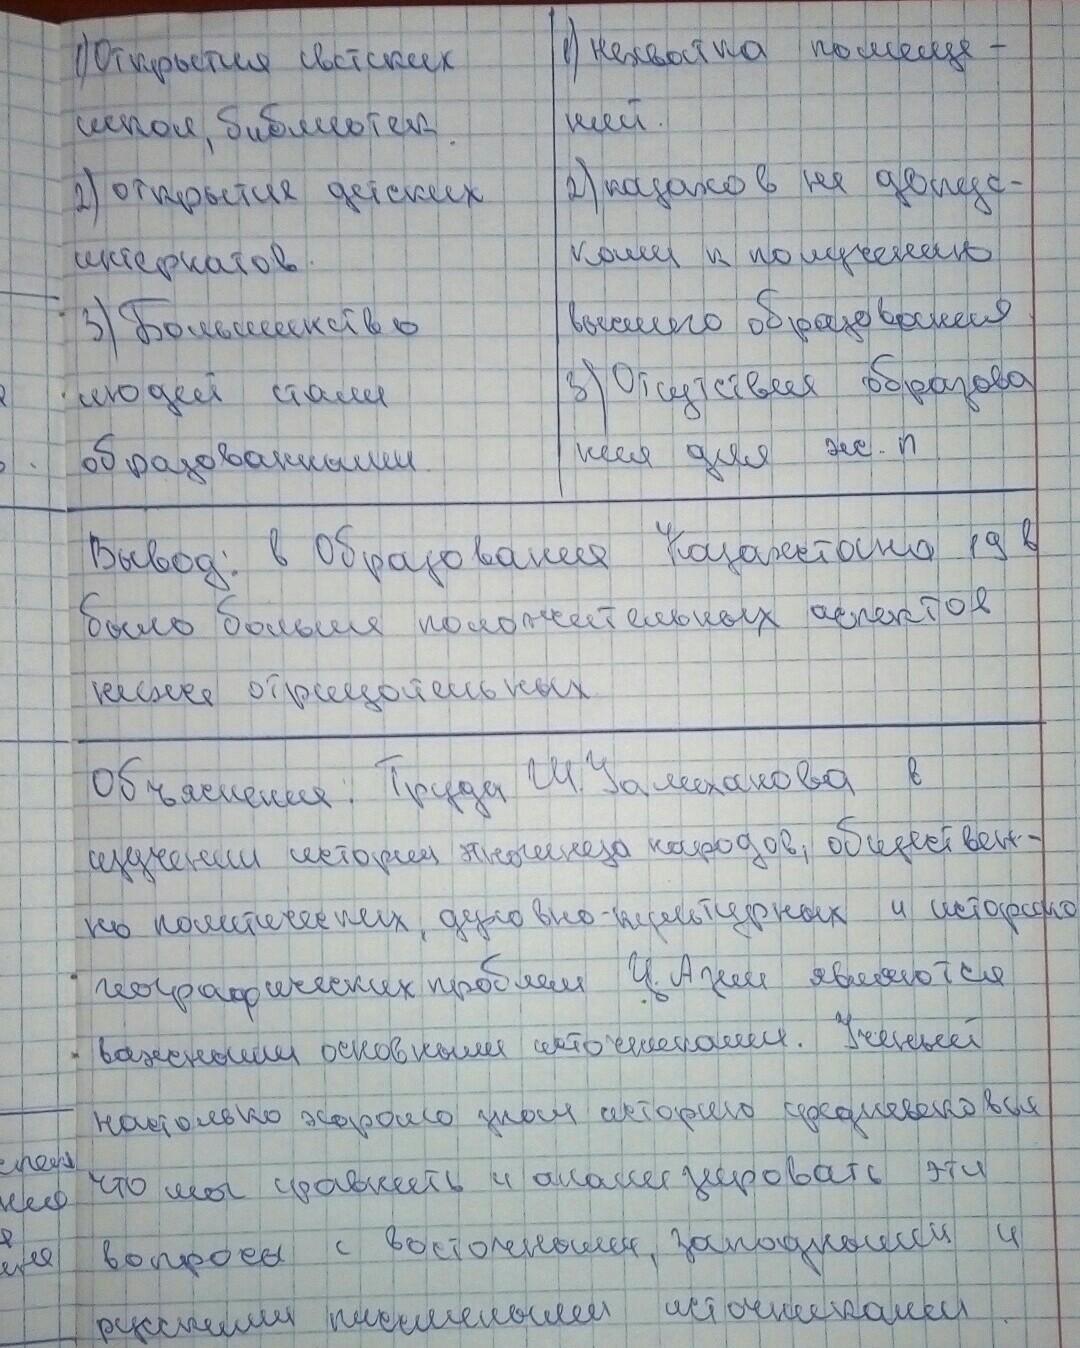 1) Открытия светских
школ, библиотек.
2) открытие детских
интернатов.
3) Большинство
людей стали
образованными
1) нехватка помеще-
ний.
2) казахов не допус-
кали к получению
высшего образования
3) Отсутствия образова
ния для ж.п
Вывод: в Образования Казахстана 19 в
было больше положительных аспектов
ниже отрицательных
Объяснения: Труда Ш.Уалиханова в
изучении истории этногенеза народов, обществен-
но политических, духовно-культурных и историко
географических проблем Ц. Азии являются
важными основными источниками. Ученый
настолько хорошо знал историю средневековья
что мог сравнить и анализировать эти
вопросы с восточными, западными и
русскими письменными источниками.